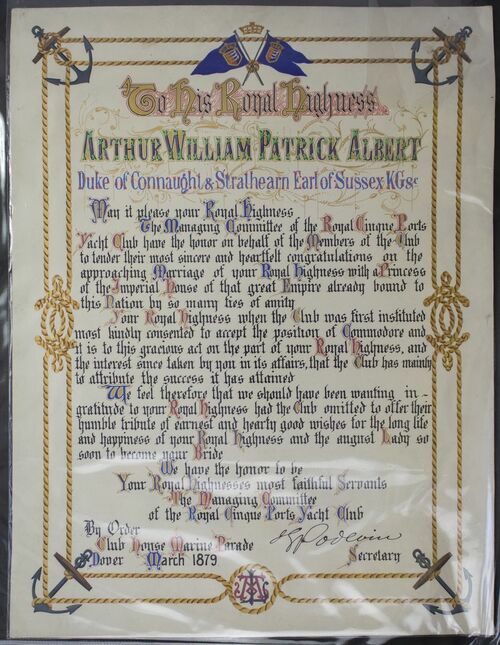 To His Royal Highness
ARTHUR WILLIAM PATRICK ALBERT
Duke of Connaught & Strathearn Earl of Sussex KG &c
May it please your Royal Highness
The Managing Committee of the Royal Cinque Ports
Yacht Club have the honor on behalf of the Members of the Club
to tender their most sincere and heartfelt congratulations on the
approaching Marriage of your Royal Highness with a Princess
of the Imperial House of that great Empire already bound to
this Nation by so many ties of amity
Your Royal Highness when the Club was first instituted
most kindly consented to accept the position of Commodore and
it is to this gracious act on the part of your Royal Highness, and
the interest since taken by you in its affairs, that the Club has mainly
to attribute the success it has attained
We feel therefore that we should have been wanting in -
gratitude to your Royal Highness had the Club omitted to offer their
humble tribute of earnest and hearty good wishes for the long life
and happiness of your Royal Highness and the august Lady so
soon to become your Bride
We have the honor to be
Your Royal Highnesses most faithful Servants
The Managing Committee
of the Royal Cinque Ports Yacht Club
By Order
Club House Marine Parade
Dover March 1879
Secretary